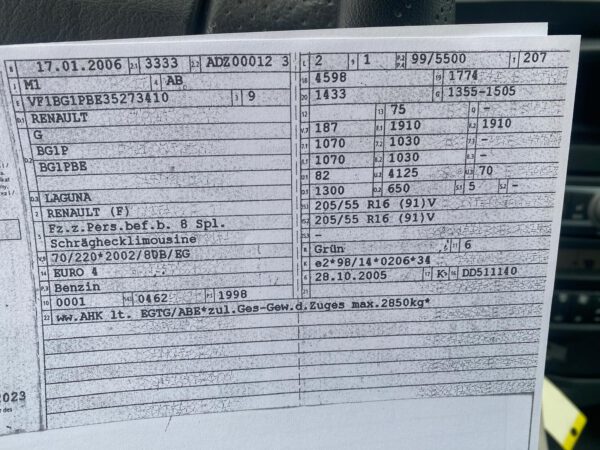 B 17.01.2006 2.1 3333 2.2 ADZ00012 3
J M1 4 AB
E VF1BG1PBE35273410 3 9
D.1 RENAULT
G
D.2 BG1P
BG1PBE
D.3 LAGUNA
2 RENAULT (F)
5 Fz.z.Pers.bef.b. 8 Spl.
Schräghecklimousine
V.9 70/220*2002/80B/EG
14 EURO 4
P.3 Benzin
10 0001 14.1 0462 P.1 1998
22 ww.AHK lt. EGTG/ABE*zul.Ges-Gew.d.Zuges max.2850kg*
L 2 9 1 P.2 P.4 99/5500 T 207
18 4598 19 1774
20 1433 G 1355-1505
12 13 75 Q -
V.7 187 F.1 1910 F.2 1910
7.1 1070 7.2 1030 7.3 -
8.1 1070 8.2 1030 8.3 -
U.1 82 U.2 4125 U.3 70
O.1 1300 O.2 650 S.1 5 S.2 -
15.1 205/55 R16 (91)V
15.2 205/55 R16 (91)V
15.3 -
R Grün 11 6
K e2*98/14*0206*34
6 28.10.2005 17 K 16 DD511140
21
2023